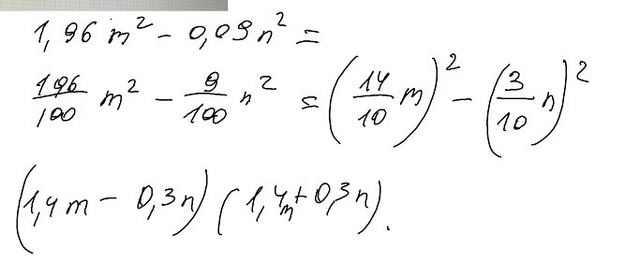 1,96 m² - 0,09 n² =
196/100 m² - 9/100 n² = (14/10 m)² - (3/10 n)²
(1,4m - 0,3n) (1,4m + 0,3n).